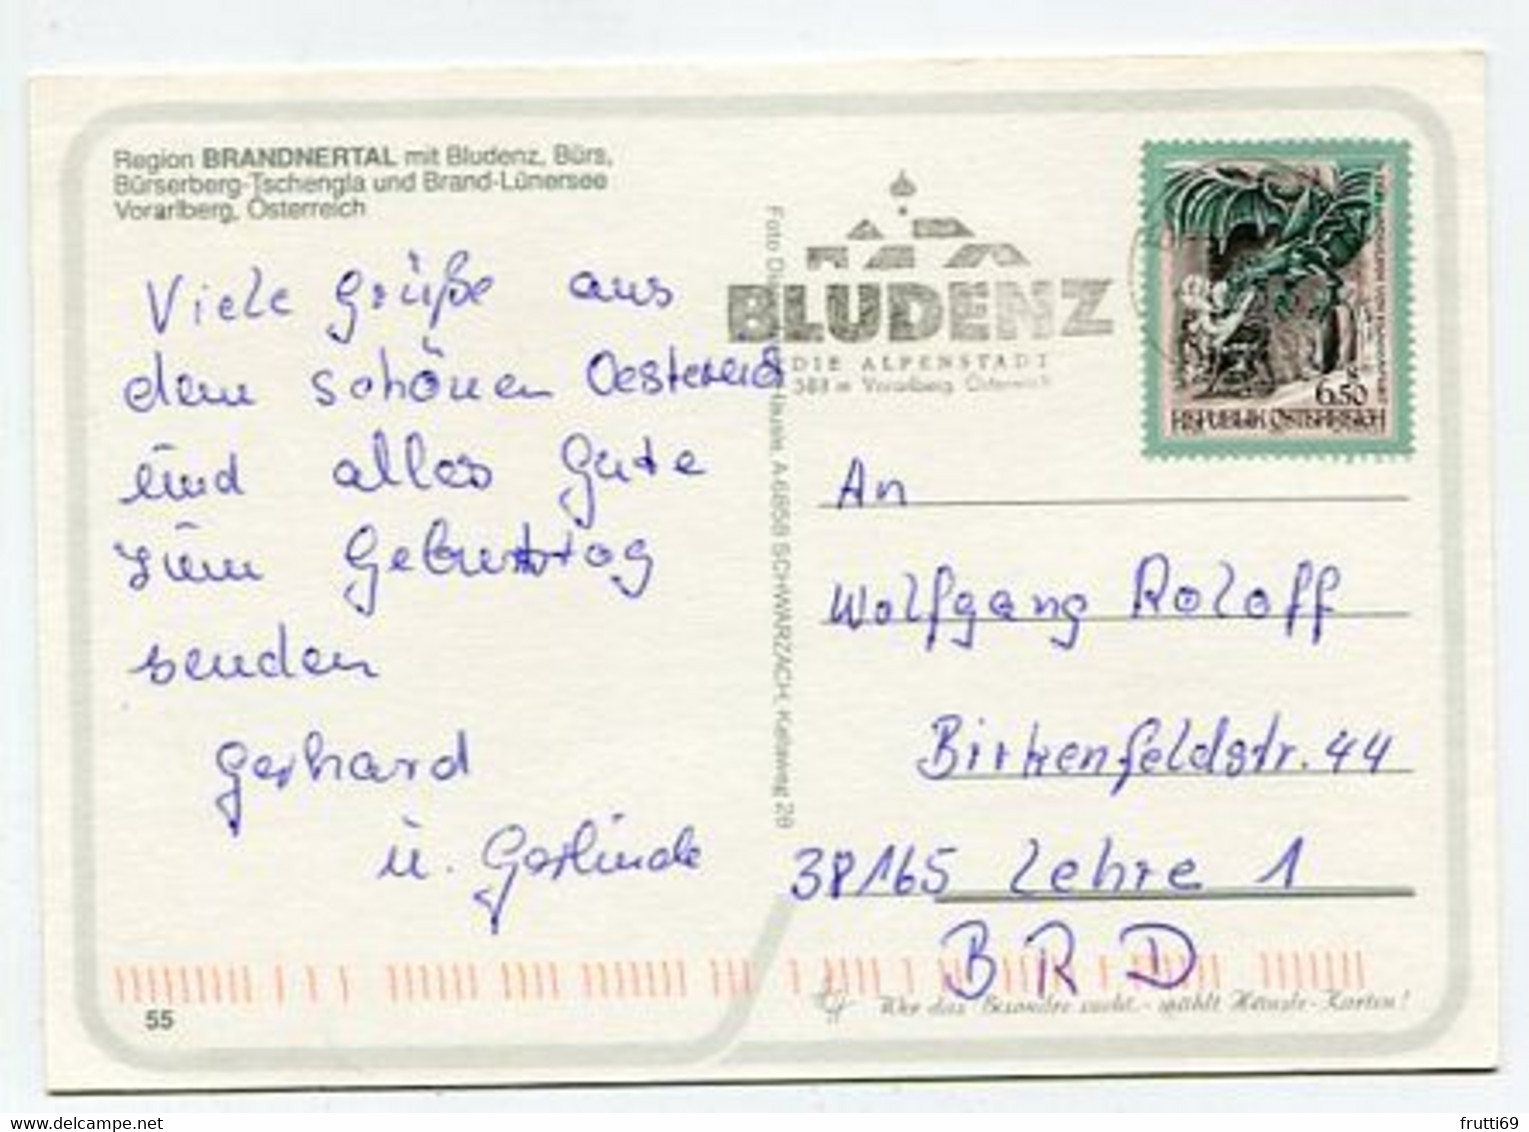 Region BRANDNERTAL mit Bludenz, Bürs,
Bürserberg-Tschengla und Brand-Lünersee
Vorarlberg, Österreich
Viele Grüße aus
dem schönen Oestereich
und alles Gute
zum Geburtstag
senden
Gerhard
u. Gerlinde
55
Foto A-6858 SCHWARZACH, 28
BLUDENZ
DIE ALPENSTADT
588 m Vorarlberg Österreich
6.50
REPUBLIK ÖSTERREICH
An
Wolfgang Roloff
Birkenfeldstr. 44
38165 Lehre 1
BRD
Wer das Besondre sucht, - wählt Häusle-Karten!
delcampe.net
frutti69